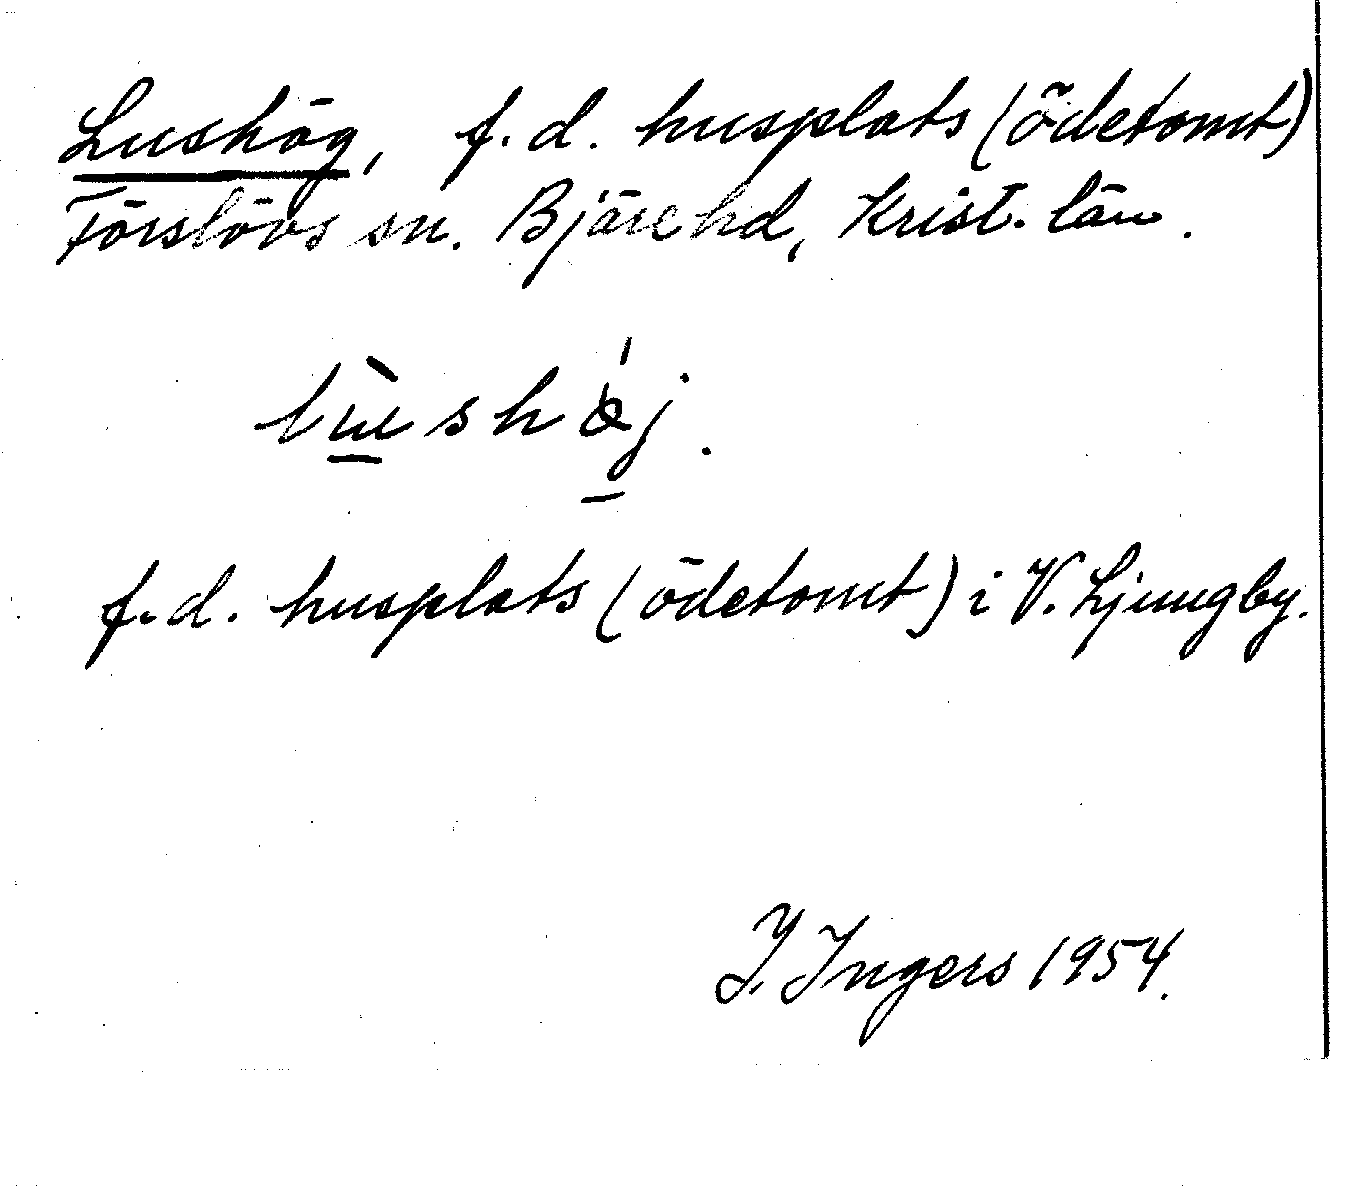 Lushög, f.d. husplats (ödetomt)
Förslövs sn. Bjäre hd, Krist. län.
f.d. husplats (ödetomt) i V. Ljungby.
I. Ingers 1954.